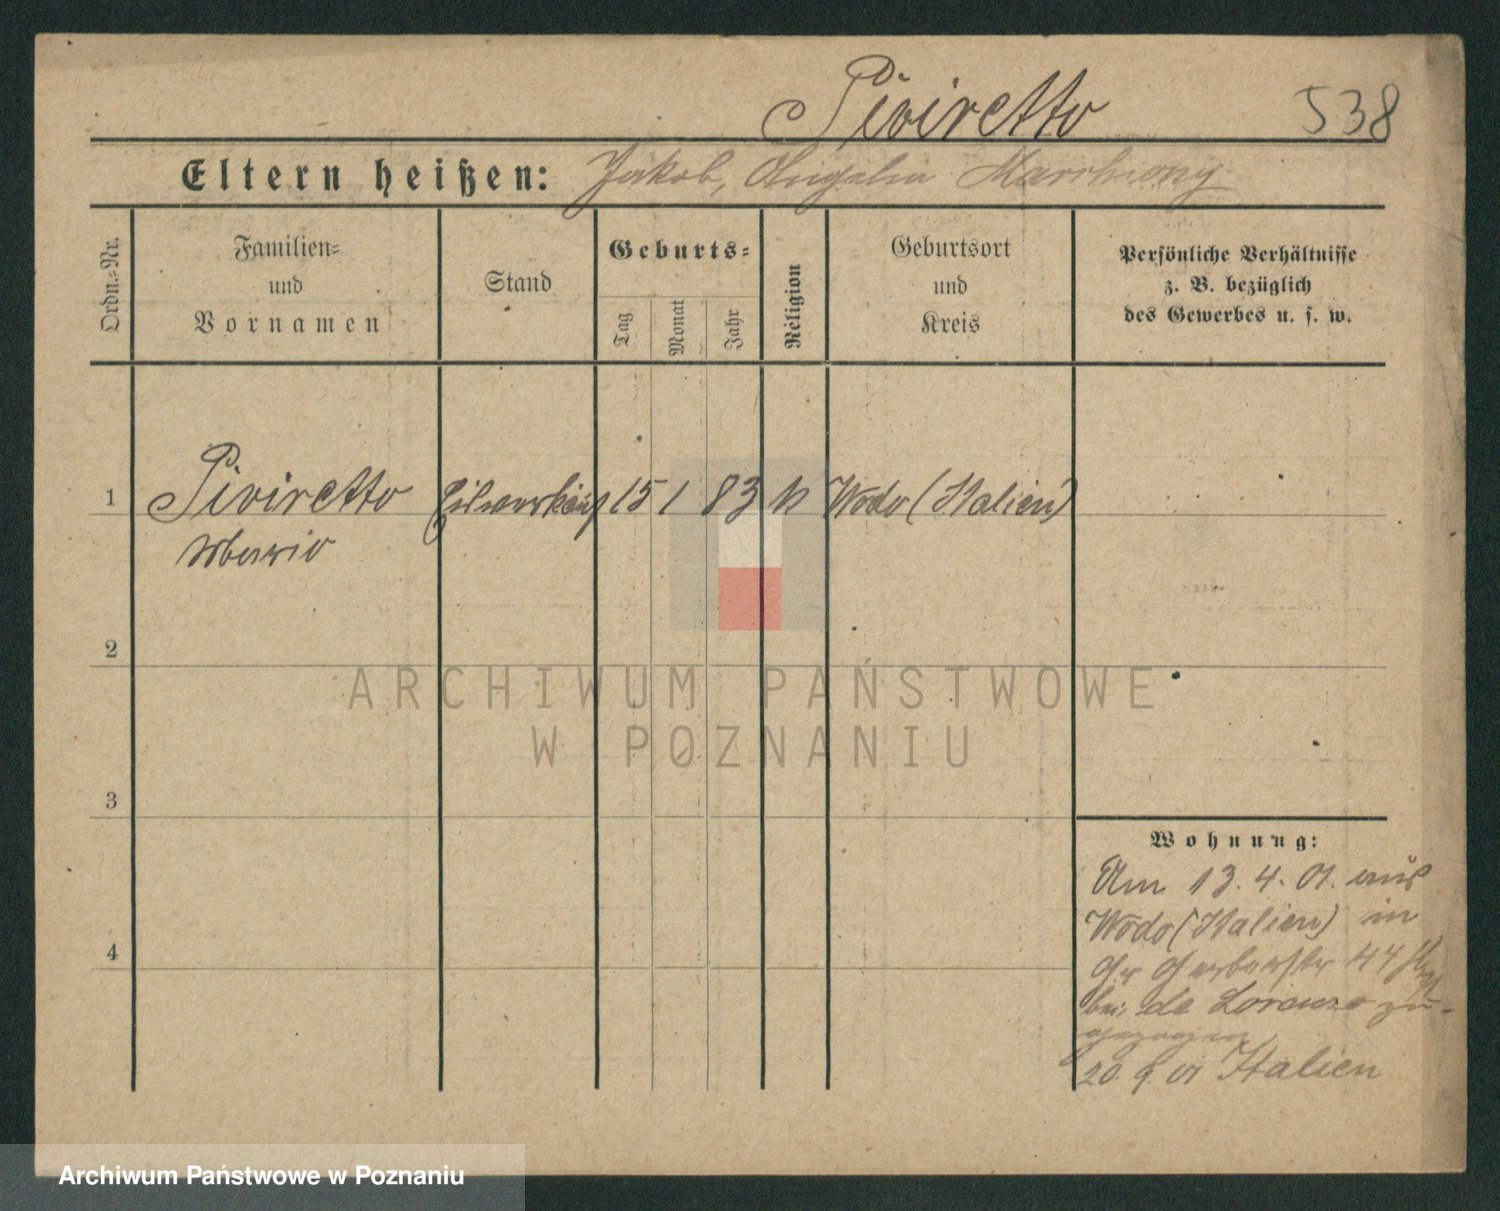 Piviretto 538
Eltern heißen: Jakob, Angelia Marchiony
Ordn.=Nr.
Familien=
und
Vornamen
Stand
Geburts=
Tag
Monat
Jahr
Religion
Geburtsort
und
Kreis
Persönliche Verhältnisse
z. B. bezüglich
des Gewerbes u. s. w.
1 Piviretto 15 1 83 k Wodo (Italien)
Mario
2
ARCHIWUM PAŃSTWOWE
W POZNANIU
3
Wohnung:
Am 13.4.01. aus
Wodo (Italien) in
Gr Gerberstr 44
bei de Lorenzo zu-
gezogen
4
20.9.01 Italien
Archiwum Państwowe w Poznaniu